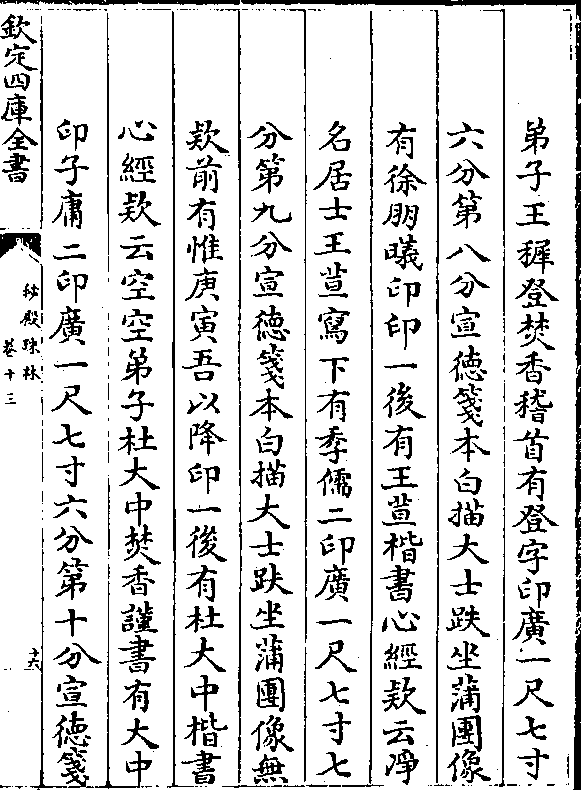 弟子王穉登焚香稽首有登字印廣一尺七寸
六分第八分宣徳箋本白描大士趺坐蒲團像
有徐朋曦印印一後有王萱楷書心經欵云淨
名居士王萱寫下有季儒二印廣一尺七寸七
分第九分宣徳箋本白描大士趺坐蒲團像無
欵前有惟庚寅吾以降印一後有杜大中楷書
心經欵云空空弟子杜大中焚香謹書有大中
印子庸二印廣一尺七寸六分第十分宣徳箋
欽定四庫全書
秘殿珠林
卷十三
十六